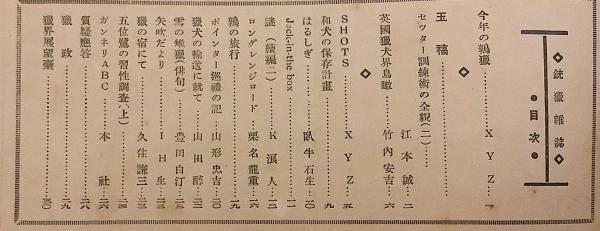 ◇銃獵雜誌◇
●目次●
今年の鶉獵…………XYZ…一
玉稿
セッター訓練術の全貌(二)……江本誠…二
英國獵犬界鳥瞰…………竹内安吉…六
◇
SHOTS…………XYZ…五
和犬の保存計畫…………九
はるしぎ…………臥牛石生…一〇
Jack-in-the box…………一一
謎(續編二)…………K濱人…一二
ロングレンジロード……栗名龍重…一六
鶉の旅行…………一九
ポインター巡禮の記……山形忠吉…二〇
獵犬の輸送に就て……山田醇…二二
雪の雉獵(俳句)……豊田白汀…二三
矢吹だより…………IH生…二三
獵の宿にて…………久住謙三…二三
五位鷺の習性調査(上)…………二四
ガンネリABC……本社…二六
質疑應答…………二八
獵政…………二九
獵界展望臺…………三〇